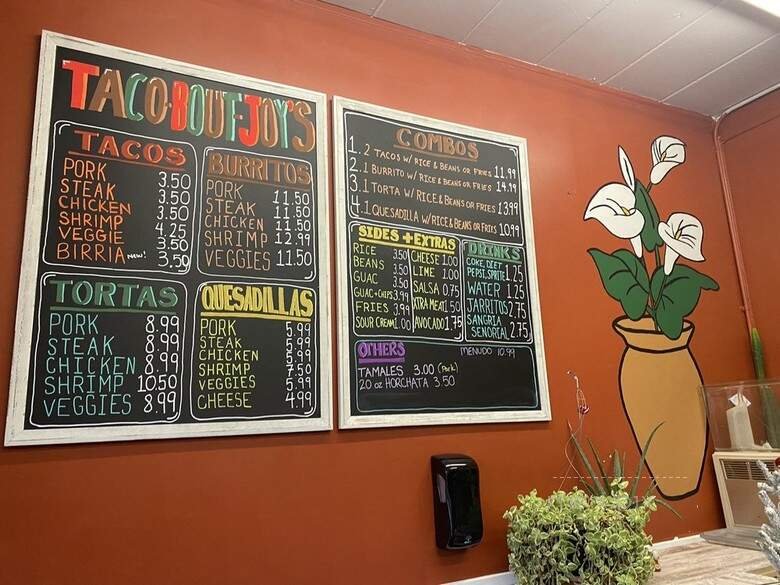 TACO-BOUT-JOY'S
TACOS
PORK 3.50
STEAK 3.50
CHICKEN 3.50
SHRIMP 4.25
VEGGIE 3.50
BIRRIA NEW! 3.50
BURRITOS
PORK 11.50
STEAK 11.50
CHICKEN 11.50
SHRIMP 12.99
VEGGIES 11.50
TORTAS
PORK 8.99
STEAK 8.99
CHICKEN 8.99
SHRIMP 10.50
VEGGIES 8.99
QUESADILLAS
PORK 5.99
STEAK 5.99
CHICKEN 5.99
SHRIMP 7.50
VEGGIES 5.99
CHEESE 4.99
COMBOS
1. 2 TACOS W/ RICE & BEANS OR FRIES 11.99
2. 1 BURRITO W/ RICE & BEANS OR FRIES 14.99
3. 1 TORTA W/ RICE & BEANS OR FRIES 13.99
4. 1 QUESADILLA W/ RICE & BEANS OR FRIES 10.99
SIDES + EXTRAS
RICE 3.50 CHEESE 1.00
BEANS 3.50 LIME 1.00
GUAC 3.50 SALSA 0.75
GUAC + CHIPS 3.99 XTRA MEAT 1.50
FRIES 3.99
SOUR CREAM 1.00 AVOCADO 1.75
DRINKS
COKE, DIET
PEPSI, SPRITE 1.25
WATER 1.25
JARRITOS 2.75
SANGRIA
SENORIAL 2.75
OTHERS
MENUDO 10.99
TAMALES 3.00 (Pork)
20 oz HORCHATA 3.50